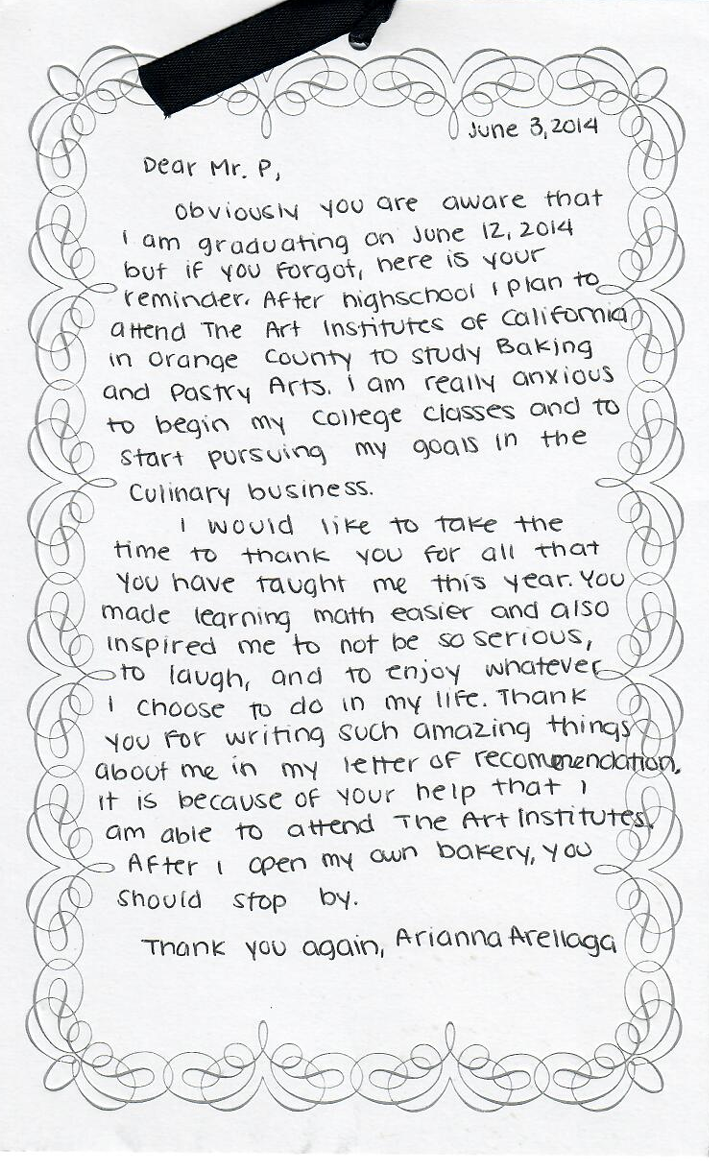 June 3, 2014
Dear Mr. P,
Obviously you are aware that
I am graduating on June 12, 2014
but if you forgot, here is your
reminder. After highschool I plan to
attend The Art Institutes of California
in Orange County to study Baking
and Pastry Arts. I am really anxious
to begin my college classes and to
start pursuing my goals in the
Culinary business.
I would like to take the
time to thank you for all that
you have taught me this year. You
made learning math easier and also
inspired me to not be so serious,
to laugh, and to enjoy whatever
I choose to do in my life. Thank
you for writing such amazing things
about me in my letter of recommendation.
It is because of your help that I
am able to attend The Art Institutes.
After I open my own bakery, you
should stop by.
Thank you again, Arianna Arellaga